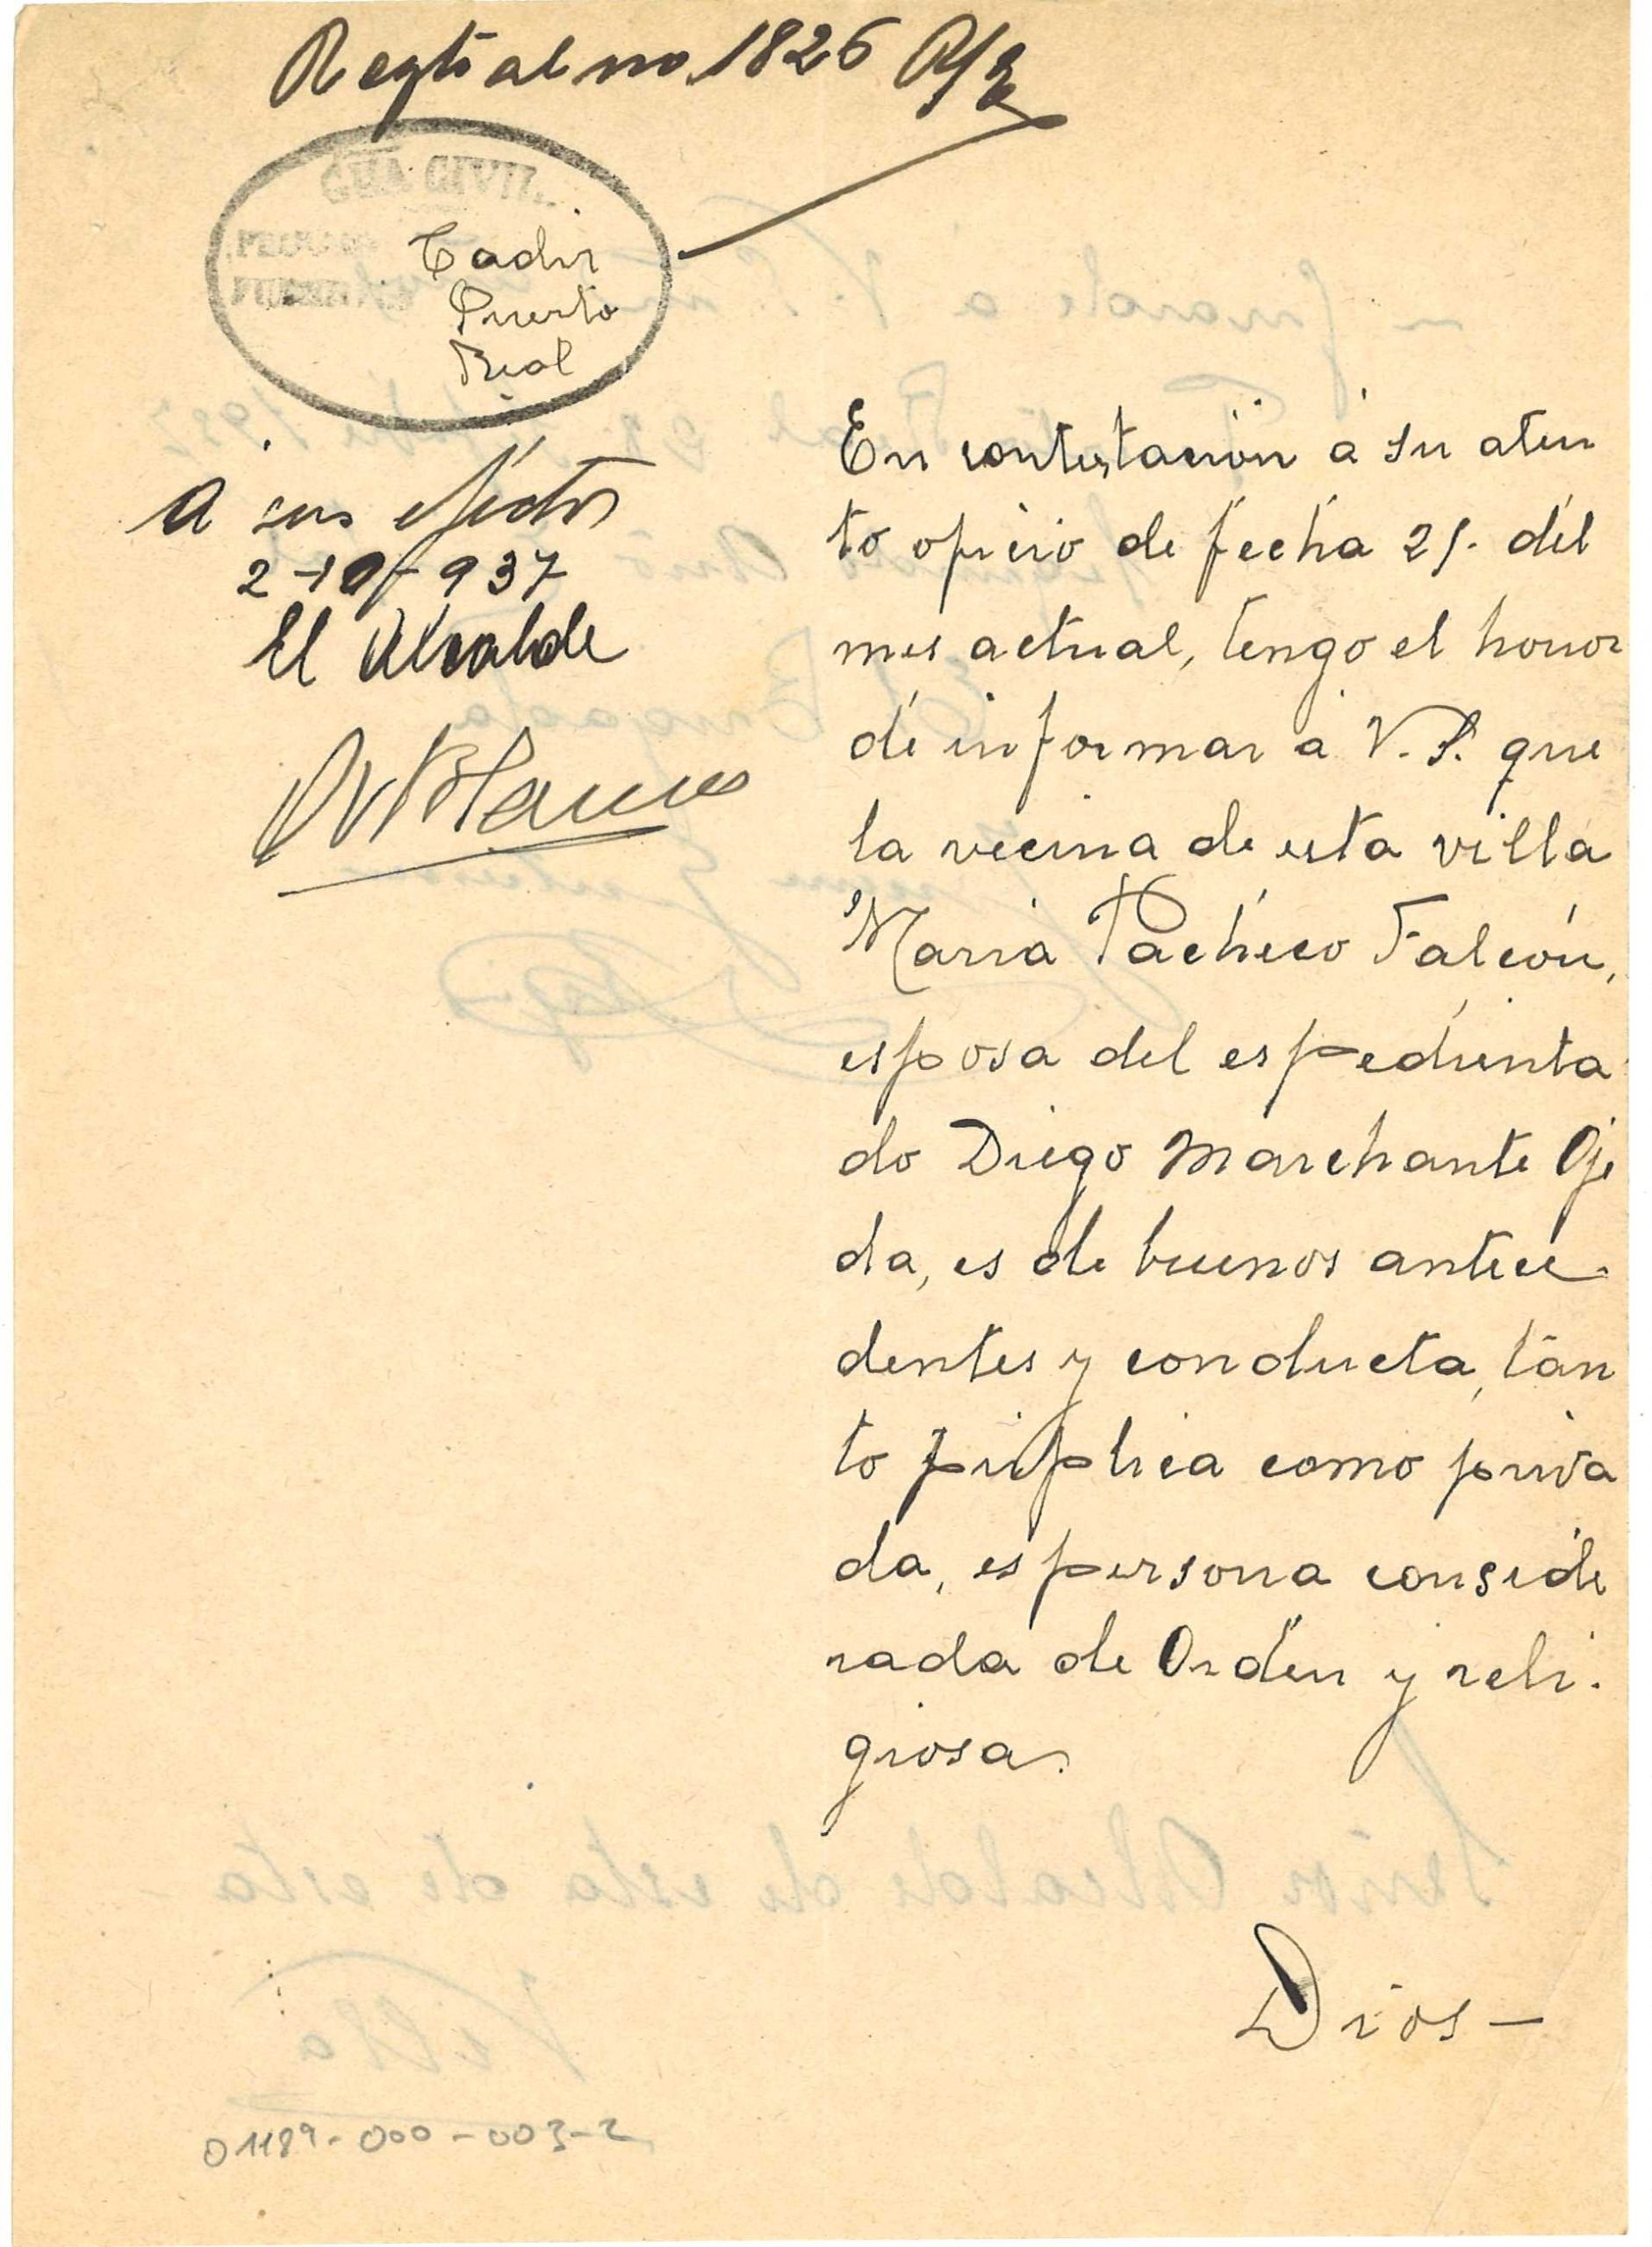 Regtº al nº 1826
GUA. CIVIL
Cadiz
Puerto
Real
A sus efectos
2-10-937
El Alcalde
En contestación á su aten
to oficio de fecha 21. del
mes actual, tengo el honor
de informar a V.S. que
la vecina de esta villa
Maria Pacheco Falcón,
esposa del espedienta
do Diego Marchante Oje
da, es de buenos antece
dentes y conducta, tan
to púplica como priva
da, es persona conside
rada de Orden y reli.
giosa.
Dios —
01189-000-003-2